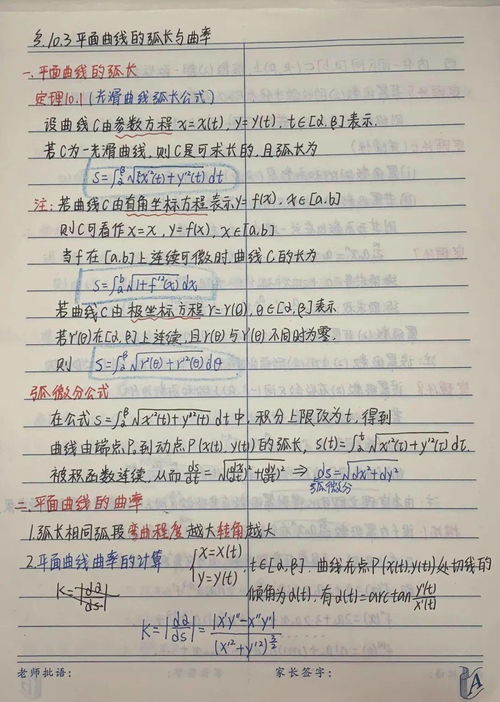 §.10.3 平面曲线的弧长与曲率
一.平面曲线的弧长
定理10.1 (光滑曲线弧长公式)
设曲线C由参数方程 x=x(t), y=y(t), t∈[α,β]表示.
若C为一光滑曲线, 则C是可求长的, 且弧长为
S=∫_α^β √(x'²(t)+y'²(t)) dt
注: 若曲线C由直角坐标方程表示y=f(x), x∈[a,b]
则C可看作x=x, y=f(x), x∈[a,b]
当f在[a,b]上连续可微时,曲线C的长为
S=∫_a^b √(1+f'²(x)) dx
若曲线C由极坐标方程r=r(θ), θ∈[α,β]表示
若r'(θ)在[α,β]上连续, 且r(θ)与r'(θ)不同时为零.
则 S=∫_α^β √(r²(θ)+r'²(θ)) dθ
弧微分公式
在公式S=∫_α^β √(x'²(t)+y'²(t)) dt中, 积分上限改为t, 得到
曲线由端点P₀到动点P(x(t),y(t))的弧长, s(t)=∫_α^t √(x'²(τ)+y'²(τ)) dτ.
被积函数连续, 从而 ds/dt=√((dx/dt)²+(dy/dt)²) ⇒ ds=√(dx²+dy²)
弧微分
二.平面曲线的曲率
1.弧长相同弧段弯曲程度越大转角越大
2.平面曲线曲率的计算 {x=x(t) y=y(t) t∈[α,β]. 曲线在点P(x(t),y(t))处切线的
K=|dα/ds| 倾角为α(t), 有α(t)=arctan y'(t)/x'(t)
K=|dα/ds|=|x'y''-x''y'|/(x'²+y'²)^(3/2)
老师批语: 家长签字: A